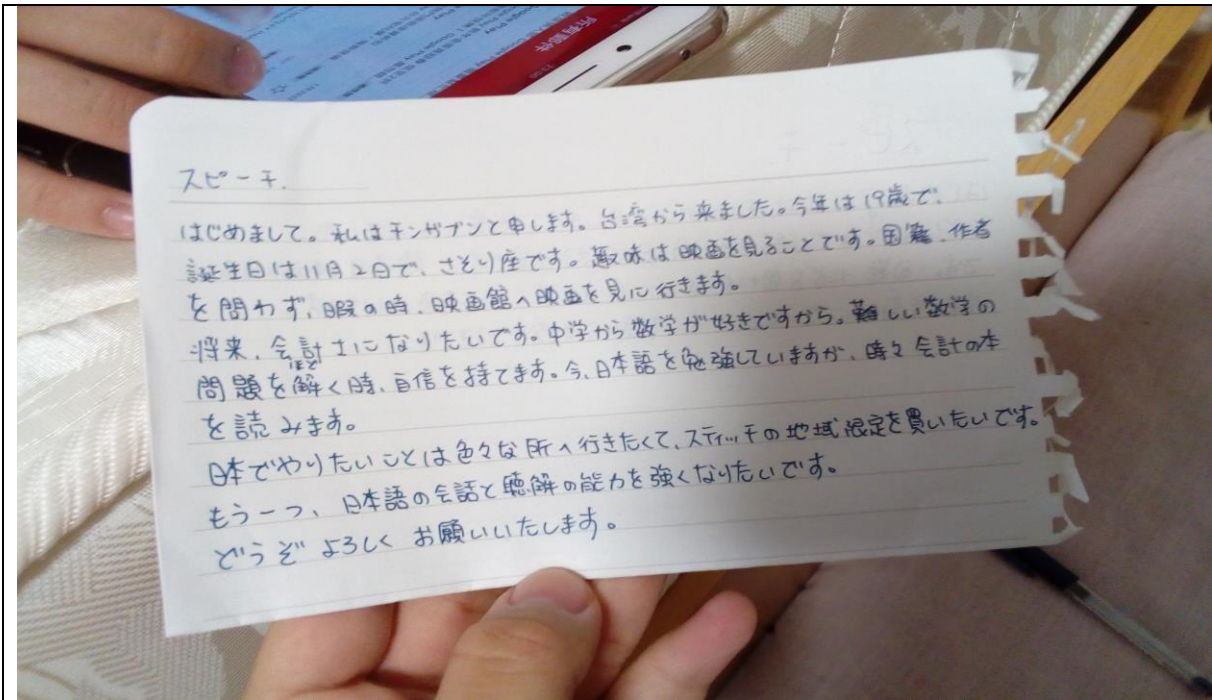 所有郵件
Google Play
スピーチ.
はじめまして。私はチンガブンと申します。台湾から来ました。今年は19歳で、
誕生日は11月2日で、さそり座です。趣味は映画を見ることです。国籍、作者
を問わず、暇の時、映画館へ映画を見に行きます。
将来、会計士になりたいです。中学から数学が好きですから。難しい数学の
問題を解く時、自信を持てます。今、日本語を勉強していますが、時々会計の本
ほど
を読みます。
日本でやりたいことは色々な所へ行きたくて、スティッチの地域限定を買いたいです。
もう一つ、日本語の会話と聴解の能力を強くなりたいです。
どうぞよろしくお願いいたします。